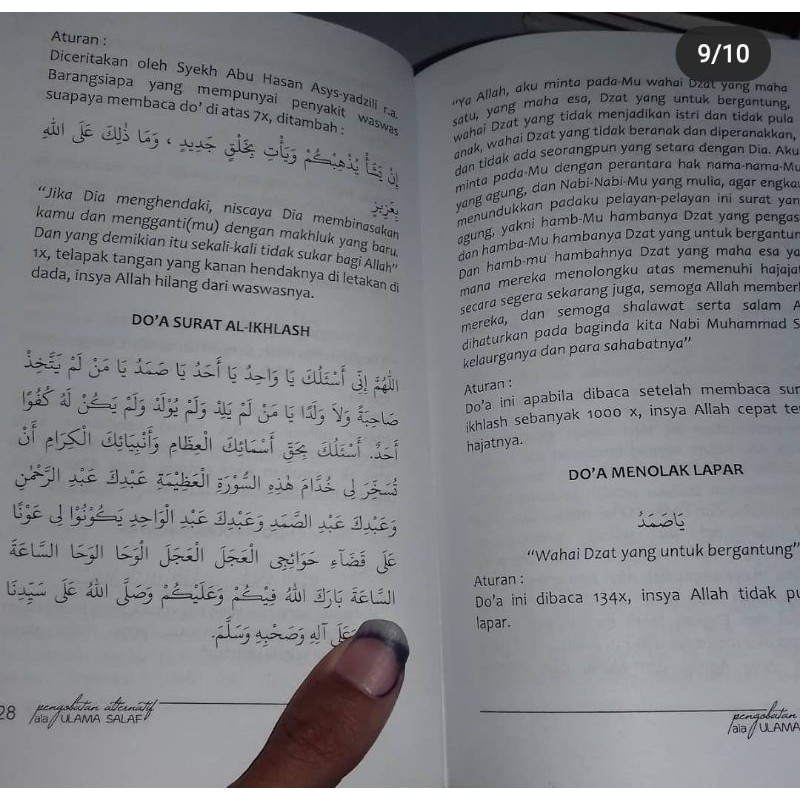 9/10
Aturan :
Diceritakan oleh Syekh Abu Hasan Asys-yadzili r.a.
Barangsiapa yang mempunyai penyakit waswas
suapaya membaca do' di atas 7x, ditambah :
إِنْ يَشَأْ يُذْهِبْكُمْ وَيَأْتِ بِخَلْقٍ جَدِيدٍ ، وَمَا ذَلِكَ عَلَى اللهِ
بِعَزِيزٍ
"Jika Dia menghendaki, niscaya Dia membinasakan
kamu dan mengganti(mu) dengan makhluk yang baru.
Dan yang demikian itu sekali-kali tidak sukar bagi Allah"
1x, telapak tangan yang kanan hendaknya di letakan di
dada, insya Allah hilang dari waswasnya.
DO'A SURAT AL-IKHLASH
اَللّٰهُمَّ إِنِّي أَسْئَلُكَ يَا وَاحِدُ يَا أَحَدُ يَا صَمَدُ يَا مَنْ لَمْ يَتَّخِذْ
صَاحِبَةً وَلَا وَلَدًا يَا مَنْ لَمْ يَلِدْ وَلَمْ يُوْلَدْ وَلَمْ يَكُنْ لَهُ كُفُوًا
أَحَدٌ. أَسْئَلُكَ بِحَقِّ أَسْمَائِكَ الْعِظَامِ وَأَنْبِيَائِكَ الْكِرَامِ أَنْ
تُسَخِّرَ لِي خُدَّامَ هٰذِهِ السُّوْرَةِ الْعَظِيْمَةِ عَبْدِكَ عَبْدِ الرَّحْمٰنِ
وَعَبْدِكَ عَبْدِ الصَّمَدِ وَعَبْدِكَ عَبْدِ الْوَاحِدِ يَكُوْنُوْا لِي عَوْنًا
عَلَى قَضَآءِ حَوَائِجِي الْعَجَلَ الْعَجَلَ الْوَحَا الْوَحَا السَّاعَةَ
السَّاعَةَ بَارَكَ اللهُ فِيْكُمْ وَعَلَيْكُمْ وَصَلَّى اللهُ عَلَى سَيِّدِنَا
وَعَلَى آلِهِ وَصَحْبِهِ وَسَلَّمَ.
28
pengobatan alternatif
ala ULAMA SALAF
"Ya Allah, aku minta pada-Mu wahai Dzat yang maha
satu, yang maha esa, Dzat yang untuk bergantung,
wahai Dzat yang tidak menjadikan istri dan tidak pula
anak, wahai Dzat yang tidak beranak dan diperanakkan,
dan tidak ada seorangpun yang setara dengan Dia. Aku
minta pada-Mu dengan perantara hak nama-nama-Mu
yang agung, dan Nabi-Nabi-Mu yang mulia, agar engkau
menundukkan padaku pelayan-pelayan ini surat yan
agung, yakni hamb-Mu hambanya Dzat yang pengas
dan hamba-Mu hambanya Dzat yang untuk bergantun
Dan hamb-mu hambahnya Dzat yang maha esa ya
mana mereka menolongku atas memenuhi hajaja
secara segera sekarang juga, semoga Allah memberi
mereka, dan semoga shalawat serta salam A
dihaturkan pada baginda kita Nabi Muhammad S
kelaurganya dan para sahabatnya"
Aturan :
Do'a ini apabila dibaca setelah membaca sur
ikhlash sebanyak 1000 x, insya Allah cepat te
hajatnya.
DO'A MENOLAK LAPAR
يَاصَمَدُ
"Wahai Dzat yang untuk bergantung"
Aturan :
Do'a ini dibaca 134x, insya Allah tidak pu
lapar.
pengobatan
ala ULAMA